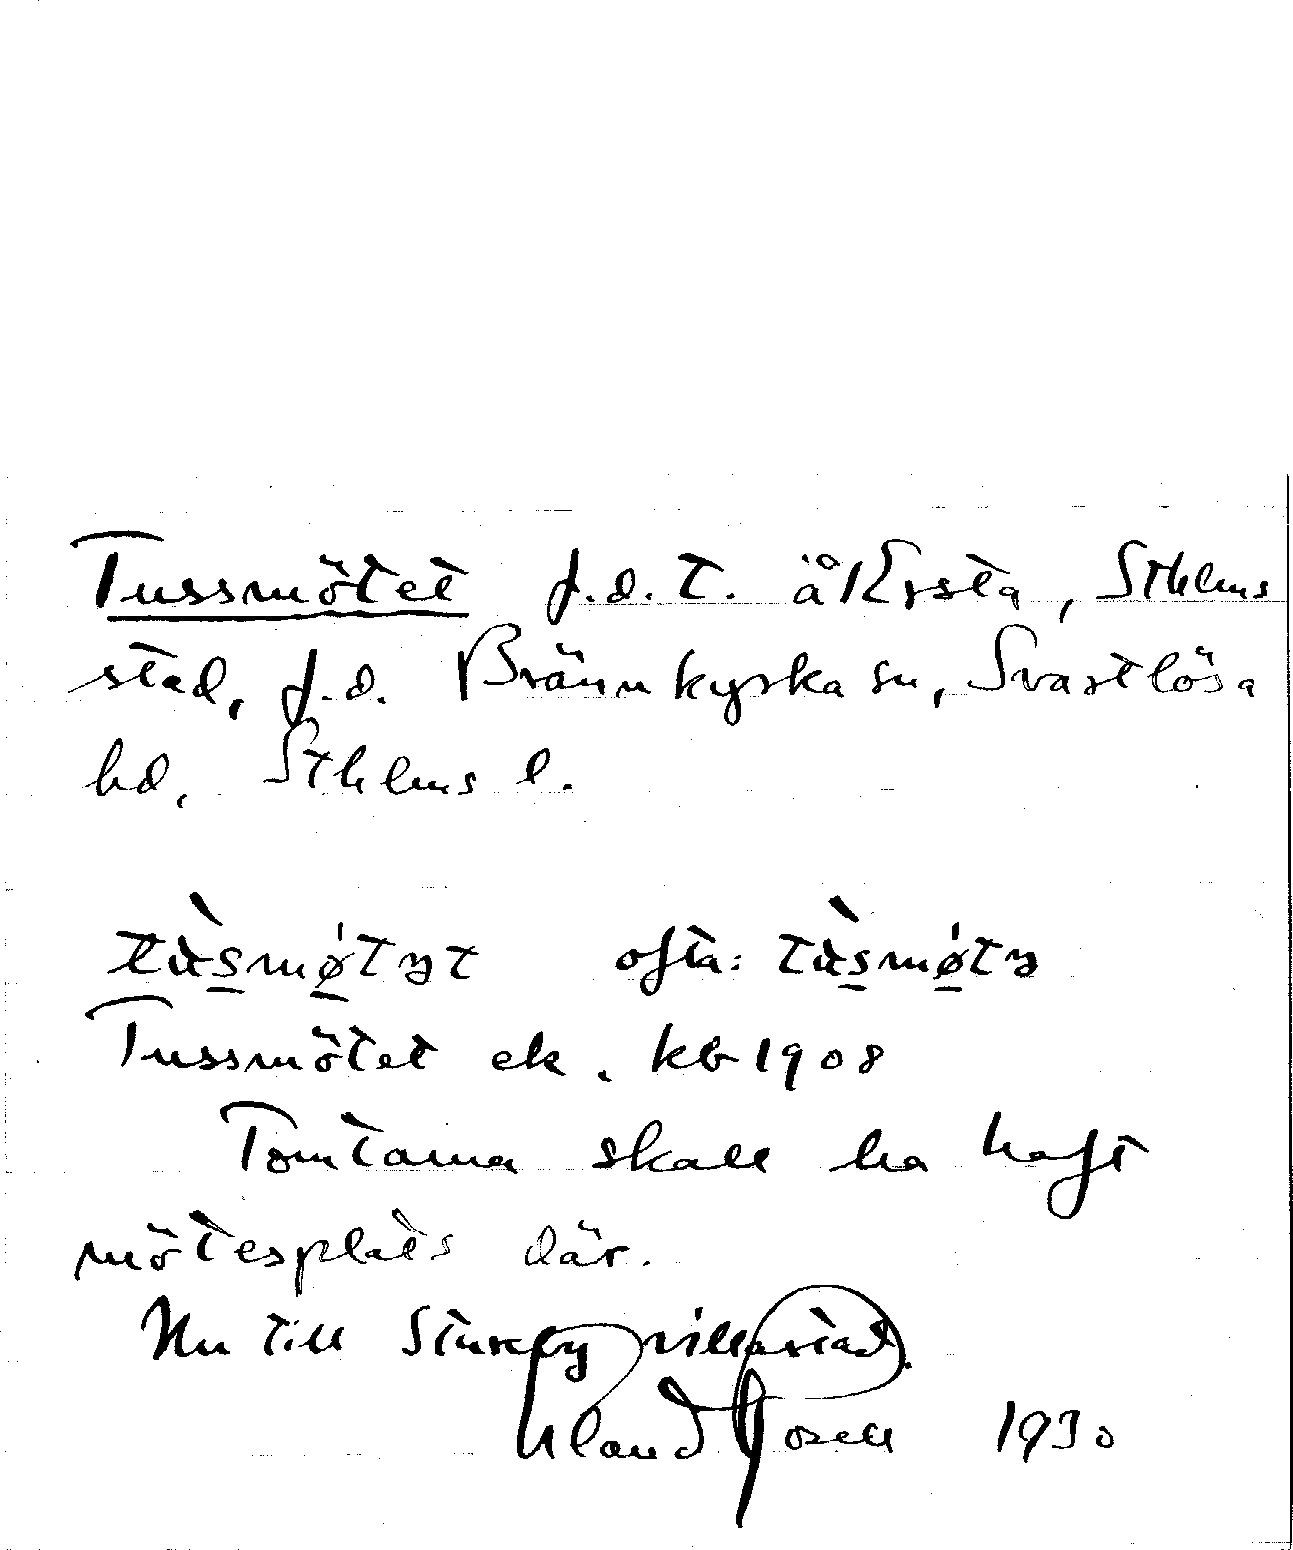 Tussmötet f.d. t. å Örsta, Sthlms
stad, f.d. Brännkyrka sn, Svartlösa
hd, Sthlms l.
ofta:
Tussmötet ek. kb 1908
Tomtarna skall ha haft
mötesplats där.
Nu till Stureby villastad.
Eland Rosell 1930